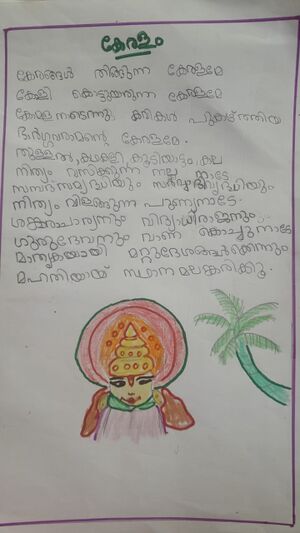 കേരളം
കേരങ്ങൾ തിങ്ങുന്ന കേരളമേ
കേളി കൊട്ടുയരുന്ന കേരളമേ
കോമള നടെന്നു കവികൾ പുകഴ്ത്തിയ
ഭാർഗ്ഗവരാമന്റെ കേരളമേ.
തുള്ളൽ, കഥകളി, കൂടിയാട്ടം, കല
നിത്യം വസിക്കുന്ന നല്ല നാടേ
സമ്പത്സമൃദ്ധിയും സർവ്വഭിവൃദ്ധിയും
നിത്യം വിളങ്ങുന്ന പുണ്യനാടേ
ശങ്കരാചാര്യനും വിദ്യാധിരാജനും
ഗുരുദേവനും വാണ കൊച്ചുനാടേ
മാതൃകയായി മറ്റുദേശങ്ങൾക്കെന്നും
മഹനിയായ് സ്ഥാനമലങ്കരിക്കൂ.